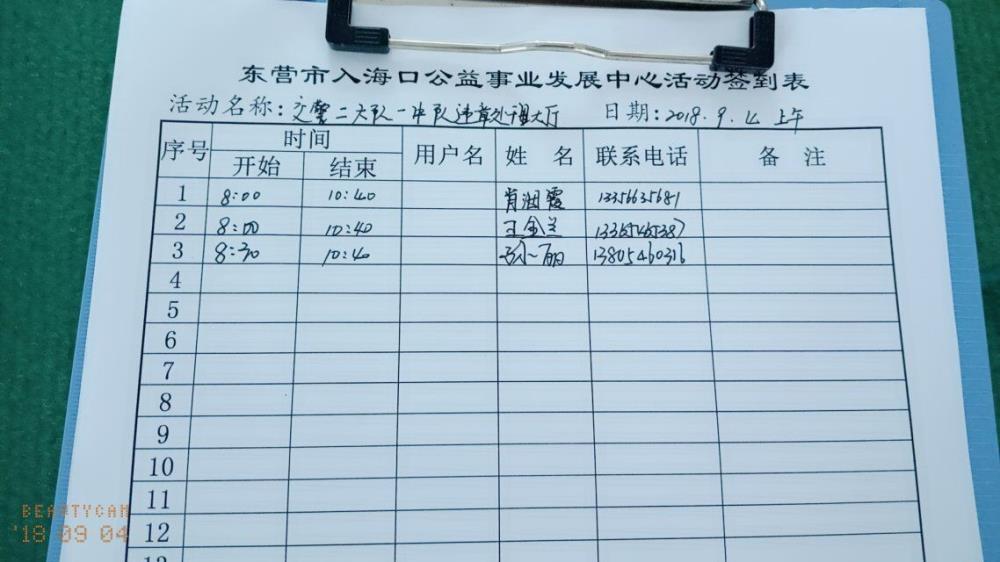 东营市入海口公益事业发展中心活动签到表
活动名称:交警二大队一中队违章处理大厅 日期:2018.9.4 上午
序号 时间 用户名 姓 名 联系电话 备 注
开始 结束
1 8:00 10:40 肖润霞 13356635681
2 8:00 10:40 王金兰 13365465387
3 8:30 10:40 孙一丽 13805460316
4
5
6
7
8
9
10
11
12
13
BEAUTYCAM
'18 09 04